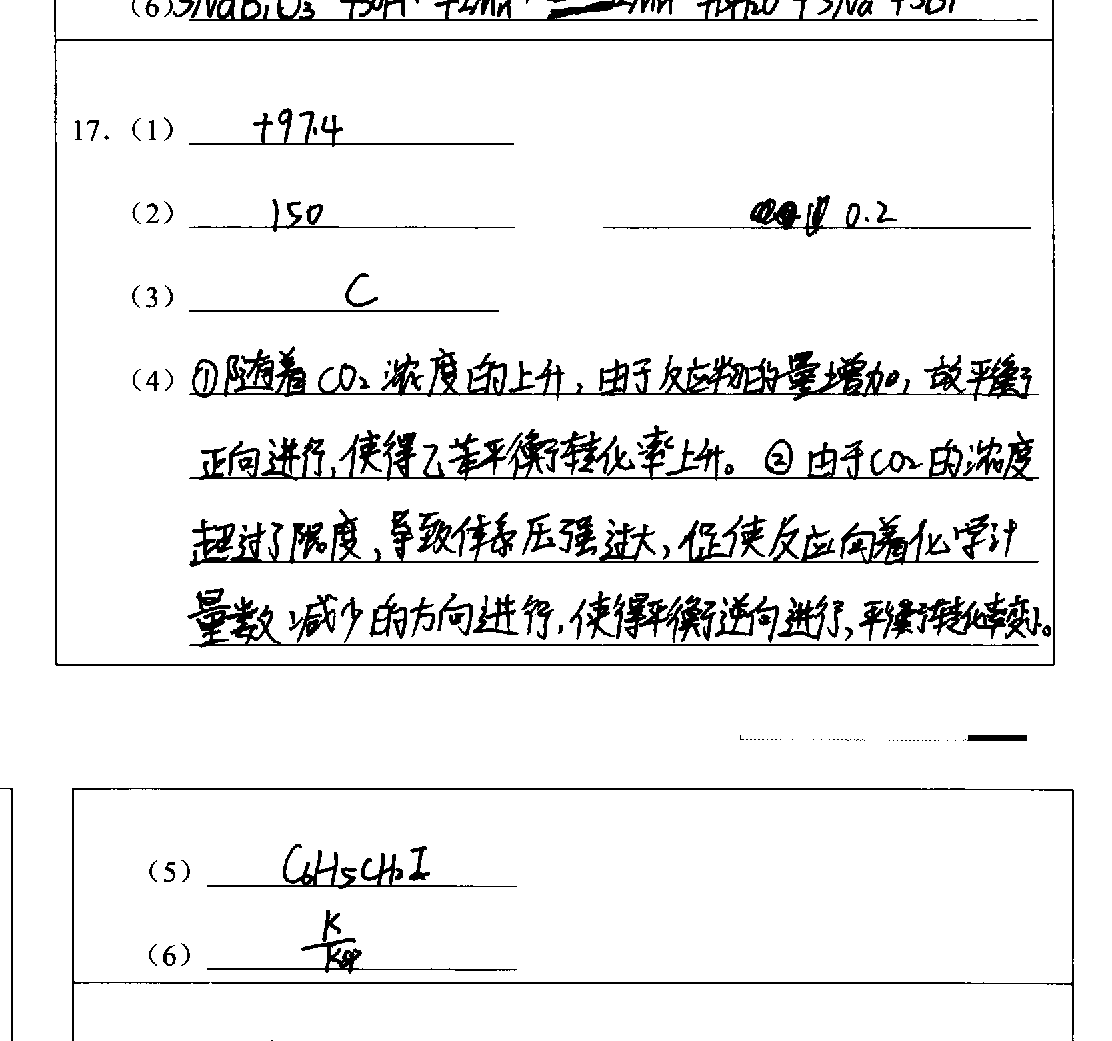 (6)3NaBiO₃ +
17. (1) +97.4
(2) 150 0.2
(3) C
(4) ①随着CO₂浓度的上升,由于反应物的量增加,故平衡
正向进行,使得乙苯平衡转化率上升。②由于CO₂的浓度
超过了限度,导致体系压强过大,促使反应向着化学计
量数减少的方向进行,使得平衡逆向进行,平衡转化率变小。
(5) C₆H₅CH₂I
(6) K/Ksp